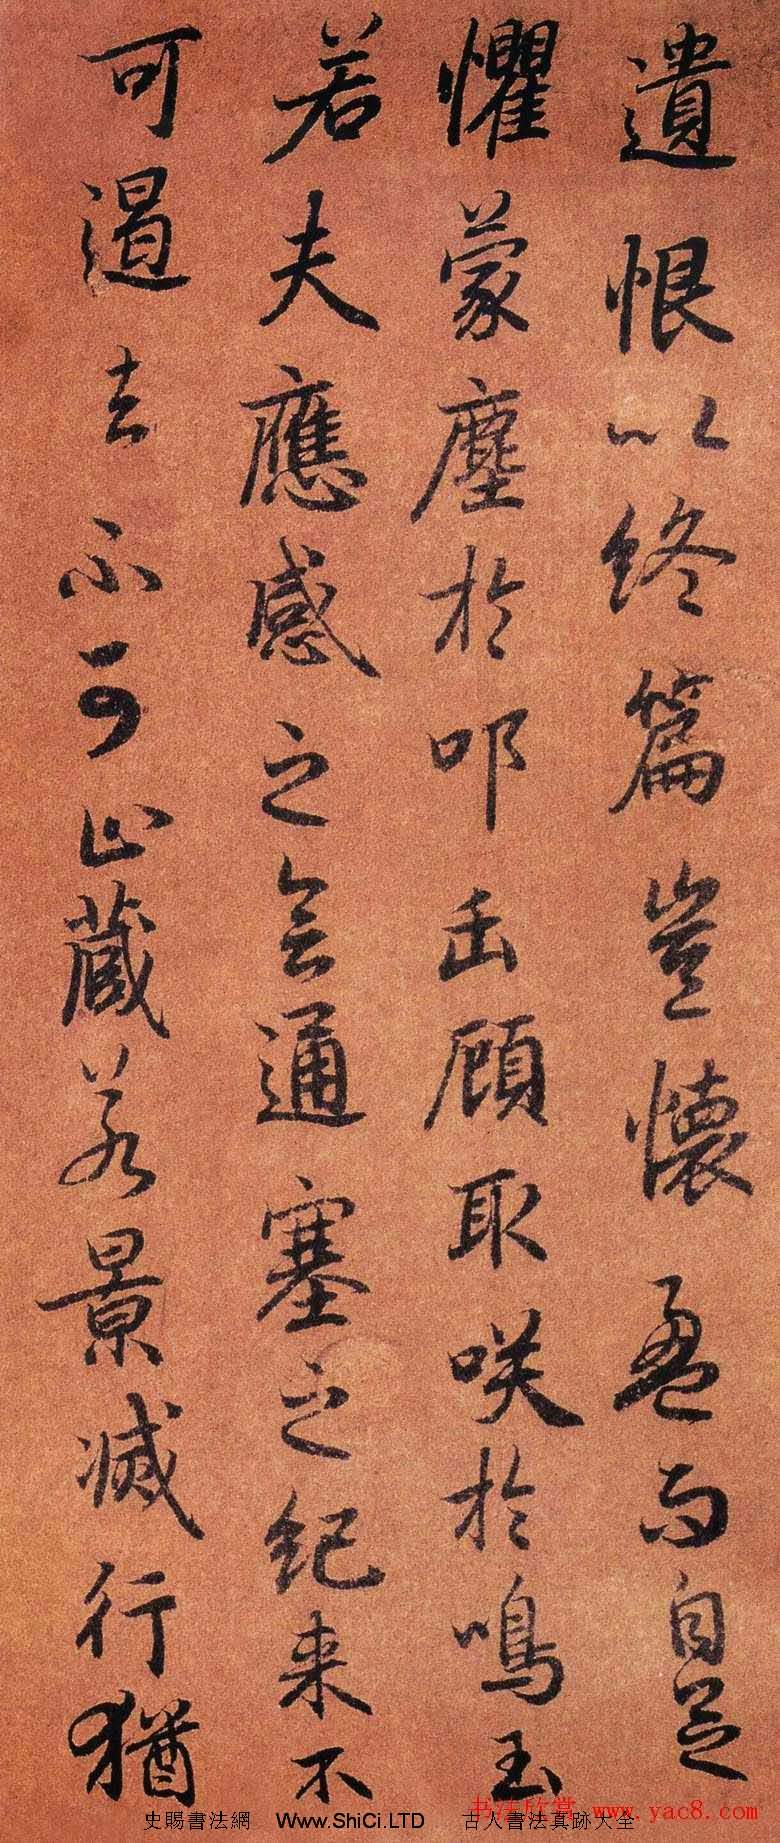 遺恨以終篇豈懷盈而自足
懼蒙塵於叩缶顧取咲於鳴玉
若夫應感之會通塞之紀来不
可遏去不可止藏若景滅行猶
书法欣赏 www.yac8.com
史賜書法網 Www.ShiCi.LTD 古人書法真跡大全